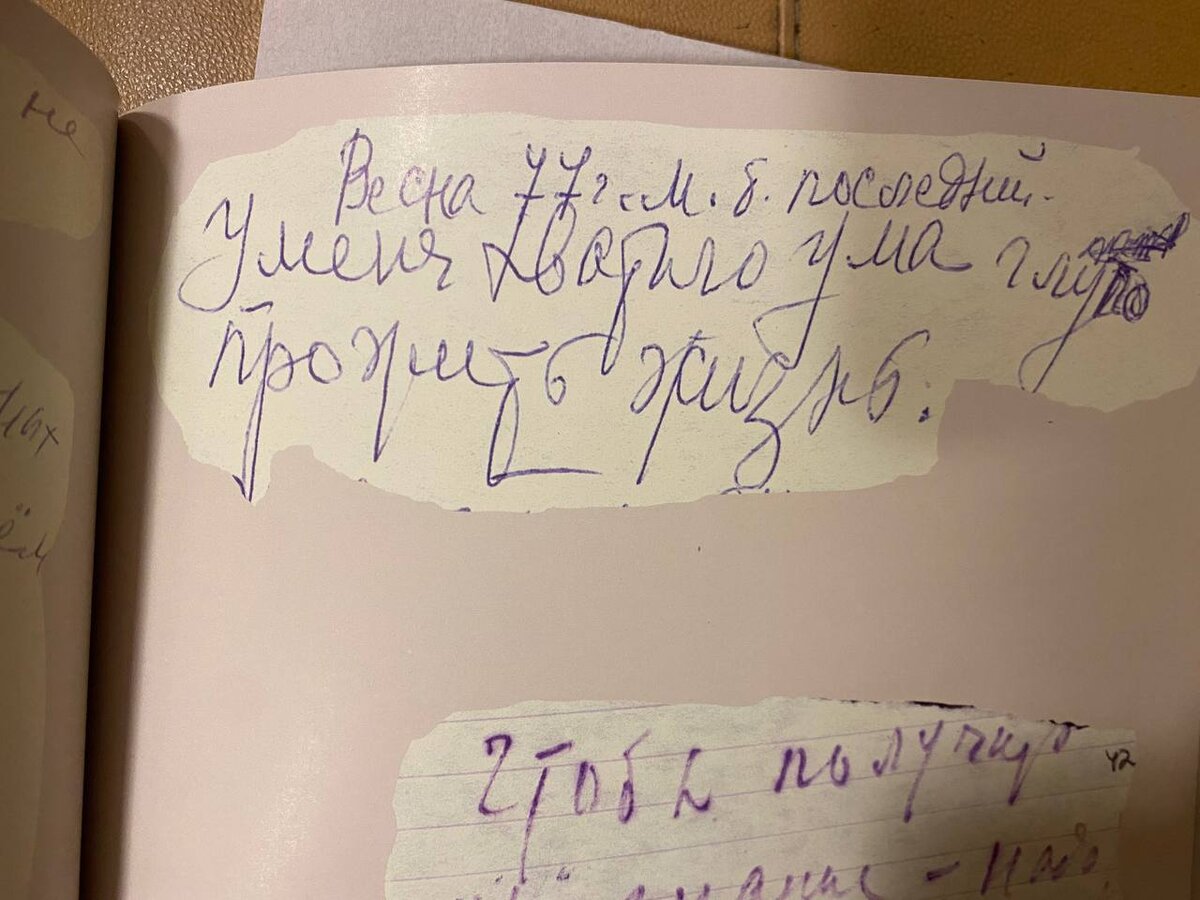 не
Весна 77 г. М. б. последний.
У меня хватило ума глупо
прожить жизнь.
Чтобы получить
42
знание - надо